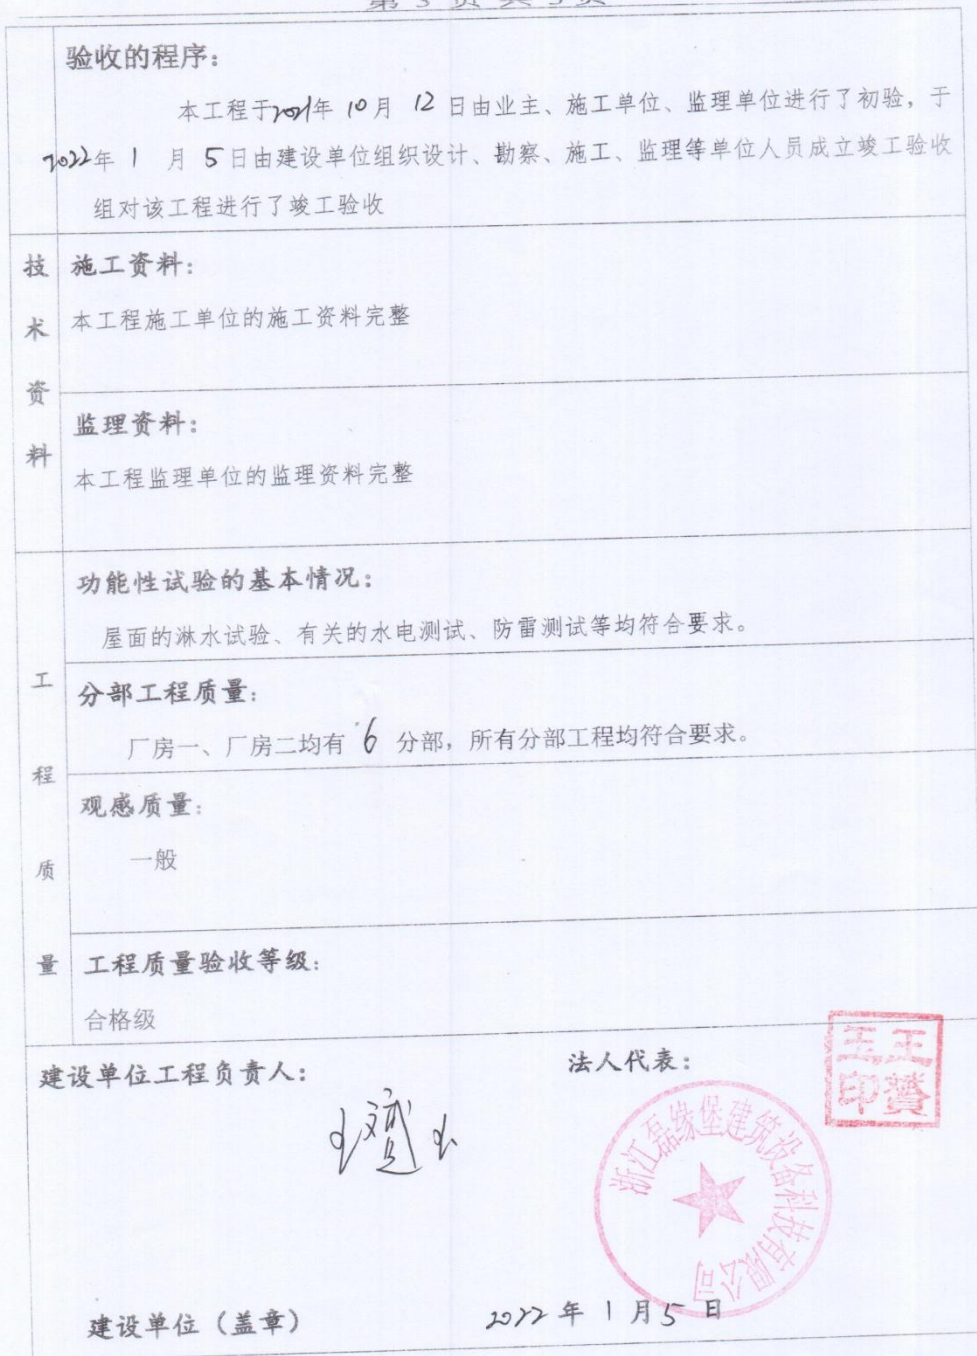 第 3 页 共 3 页
验收的程序：
本工程于2021年 10月 12 日由业主、施工单位、监理单位进行了初验，于
2022年 1 月 5 日由建设单位组织设计、勘察、施工、监理等单位人员成立竣工验收
组对该工程进行了竣工验收
技术资料
施工资料：
本工程施工单位的施工资料完整
监理资料：
本工程监理单位的监理资料完整
工程质量
功能性试验的基本情况：
屋面的淋水试验、有关的水电测试、防雷测试等均符合要求。
分部工程质量：
厂房一、厂房二均有 6 分部，所有分部工程均符合要求。
观感质量：
一般
工程质量验收等级：
合格级
建设单位工程负责人：
法人代表：
王赟玉印
浙江磊缘堡建筑设备科技有限公司
建设单位（盖章）
2022 年 1 月 5 日